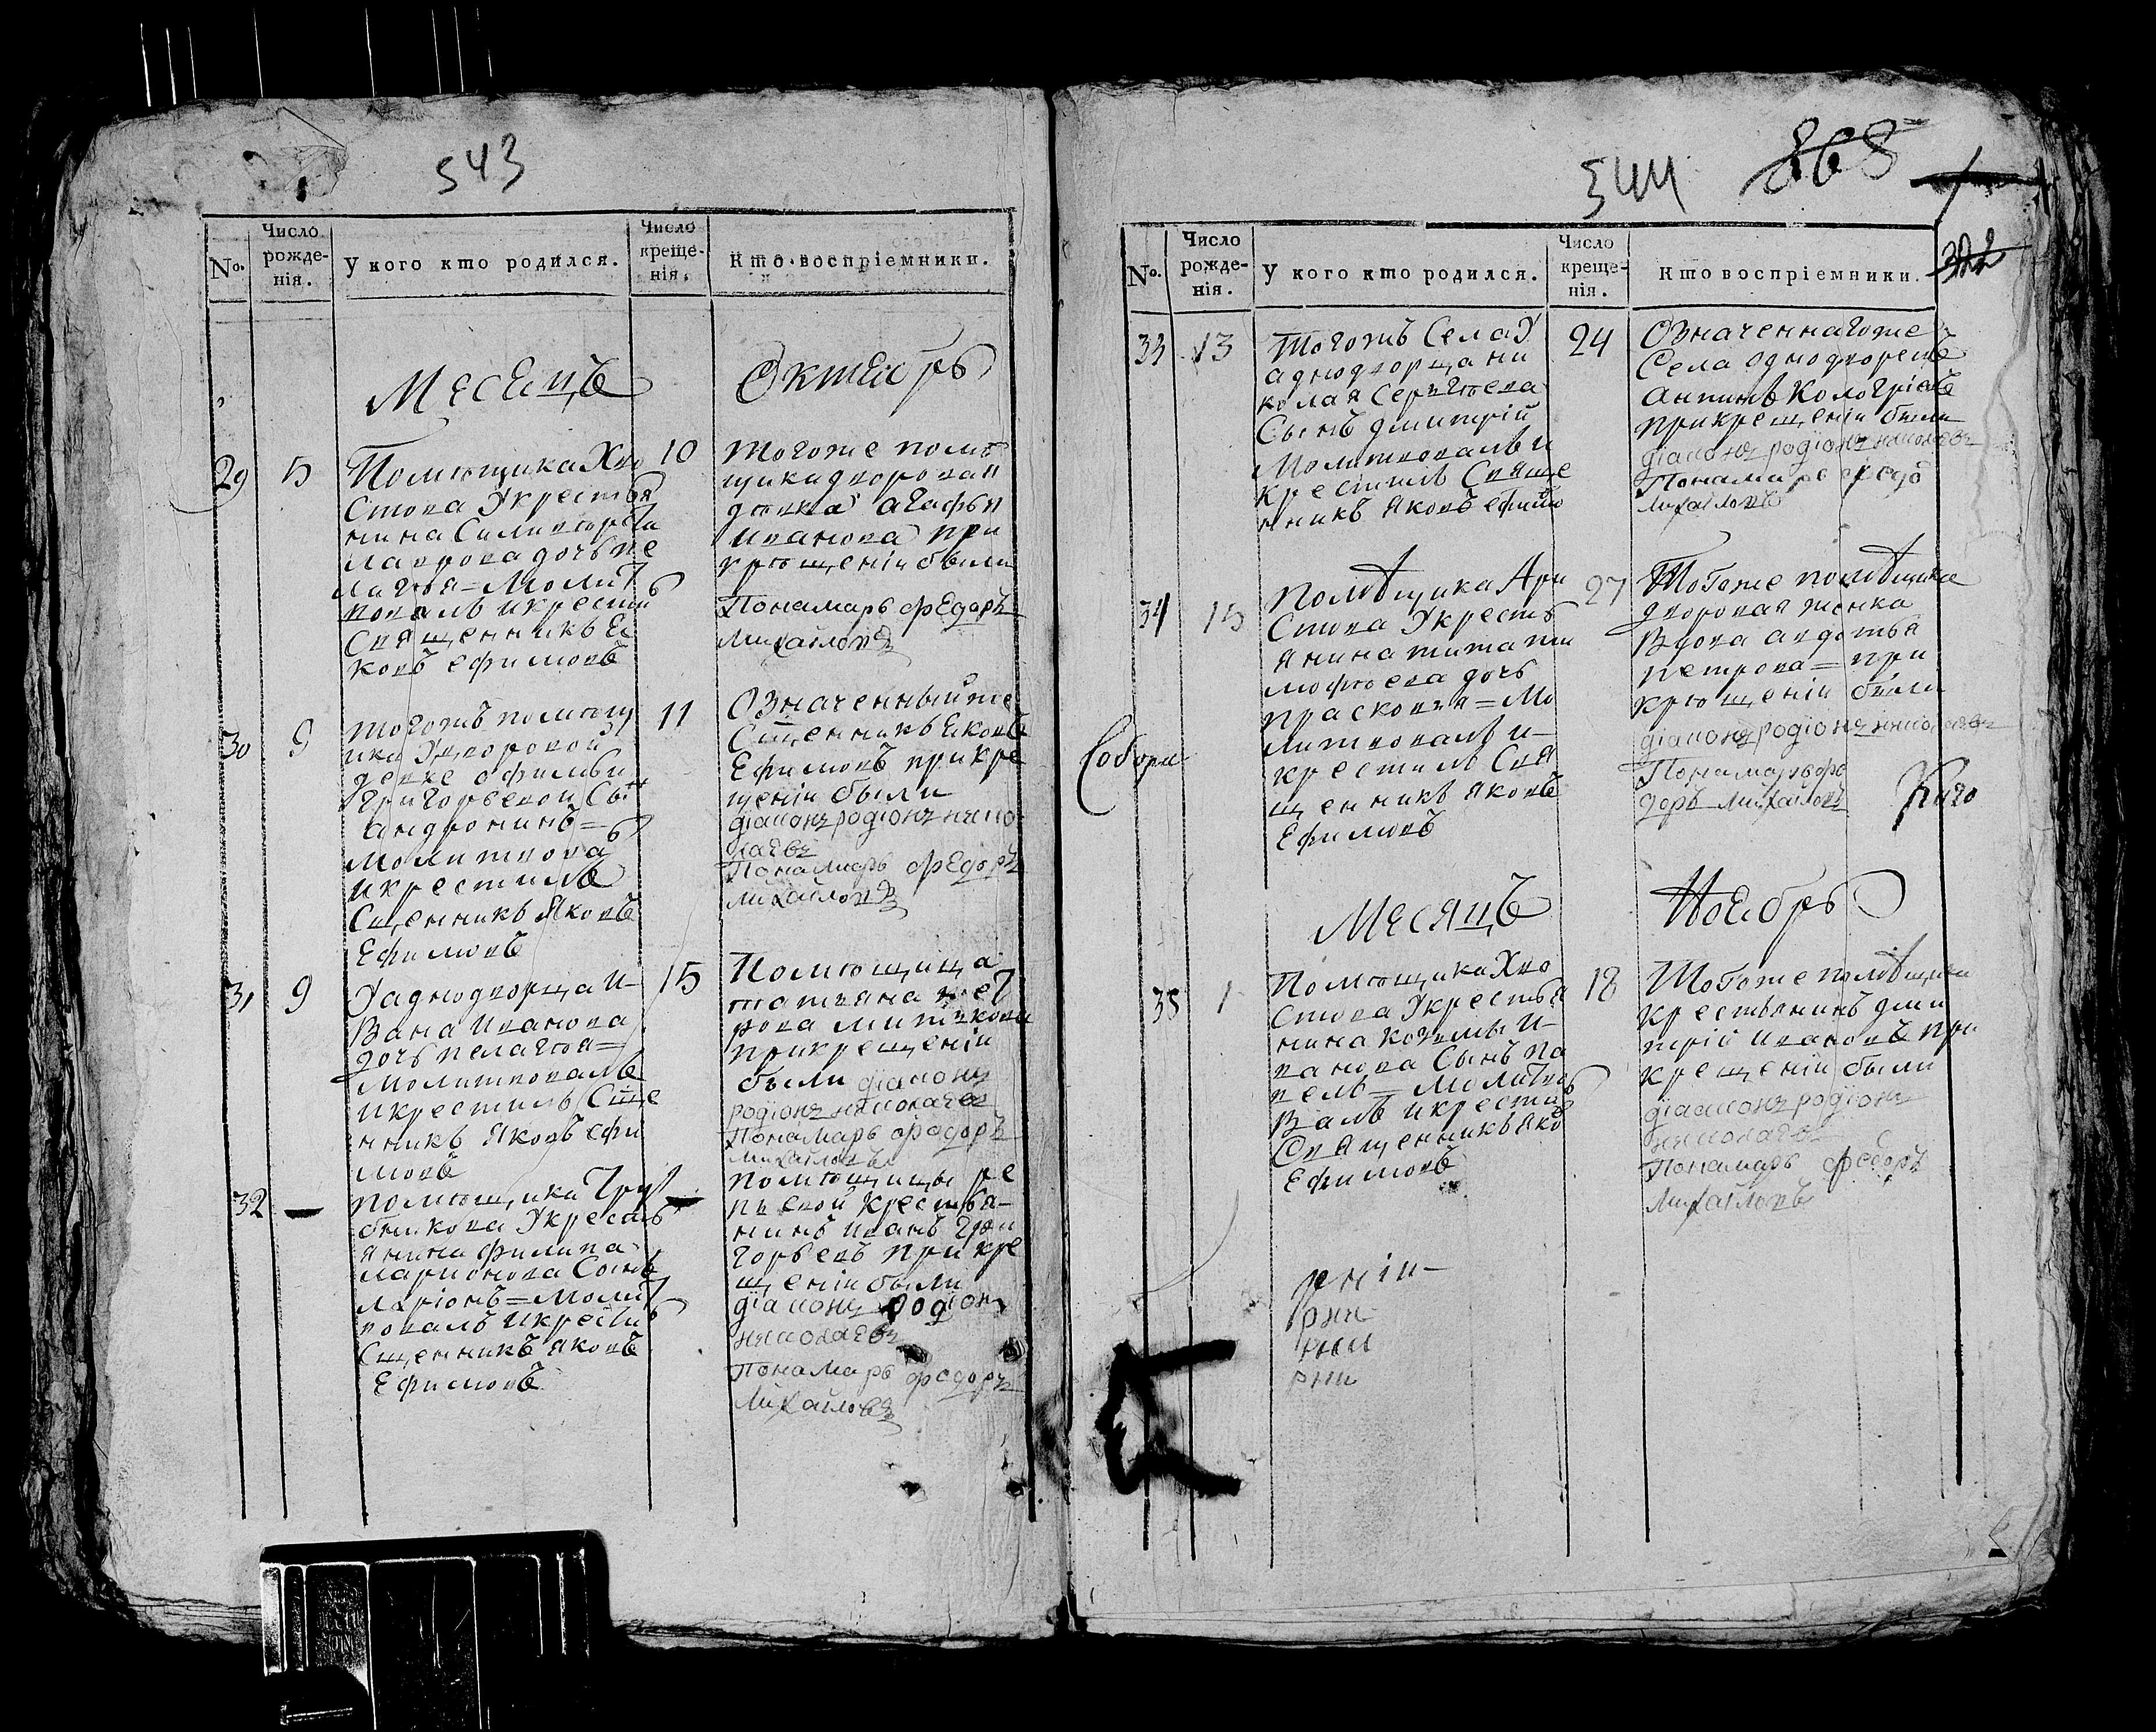 543
No.
Число рожде-нія.
У кого кто родился.
Число креще-нія.
Кто воспріемники.
Месецъ Октябрь
29 5
Помющика Хво
стова Укрестья
нина Силивюрста
лаврова дочь пе
лагѣя = Молит
вовалъ икрестилъ
Священникъ Я
ковъ ефимовъ
10
тогоже помѣ
щика дворовая
девка агафья
Иванова при
крющеніи были
Понамарь фЕдоръ
михайловъ
30 9
тогожъ помющ
ика Удворовой
девке офимьи
григорьевой Сынъ
андроникъ =
молитвова
икрестилъ
Сщенникъ Яковъ
Ефимовъ
11
Означенныйже
Сщенникъ Яковъ
Ефимовъ прикре
щеніи были
діаконъ родіонъ нико
лаевъ
Понамарь фЕдоръ
михайловъ
31 9
Уаднодворца И-
Вана Иванова
дочь пелагѣя =
молитвовалъ
икрестилъ Сще
нникъ Яковъ ефи
мовъ
15
Помющица
татьяна пет
рова
прикрещеніи
были діаконъ
родіонъ николаевъ
Понамарь федоръ
михайловъ
32 —
помющика Груз
Укресть
янина филипа
ларионова Сынъ
ларіонъ = молит
вовалъ икрестилъ
Сщенникъ Яковъ
Ефимовъ
—
помющицы ре
пьевой крестья-
нинъ иванъ гри
горьевъ прикре
щеніи были
діаконъ родіонъ
николаевъ
Понамарь федоръ
михайловъ
544 868
322
No.
Число рожде-нія.
У кого кто родился.
Число креще-нія.
Кто воспріемники.
33 13
тогожъ Села У
аднодворца ни
колая Сергѣева
Сынъ дмитрій
молитвовалъ и
крестилъ Свяще
нникъ Яковъ ефимо
24
Означеннагоже
Села однодворецъ
антипъ Кологрівъ
прикрещеніи были
діаконъ родіонъ николаевъ
Понамарь федо
михайловъ
34 15
помѣщика Хри
Стова Укресть
янина тита ти
мофѣева дочь
прасковья = Мо
литвовалъ и-
крестилъ Свя
щенникъ Яковъ
Ефимовъ
27
Тогоже помѣщика
дворовая женка
Вдова авдотья
петрова = при
крющеніи были
діаконъ родіонъ николаевъ
Понамарь фе
доръ михайловъ
Месяцъ Ноябрь
35 1
Помющика Хво
стова Укрестья
нина козмы И-
ванова Сынъ па
велъ = молитво
валъ икрестилъ
Священникъ Яко
Ефимовъ
18
Тогоже помѣщика
крестьянинъ дми
трій Ивановъ при
крещеніи были
діаконъ родіонъ
николаевъ
Понамарь федоръ
михайловъ